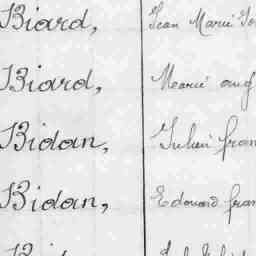 Biard, Jean Marie
Biard, Marie
Bidan, Julien fran
Bidan, Edouard fran